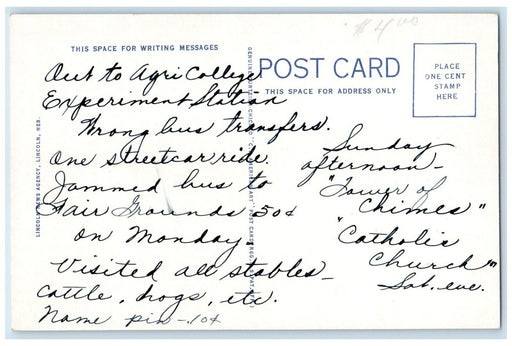 $4.00
THIS SPACE FOR WRITING MESSAGES
Out to Agri College
Experiment Station
Wrong bus transfers.
One streetcar ride.
Jammed bus to
Fair Grounds 50¢
on Monday.
Visited all stables—
cattle, hogs, etc.
Name pin—.10¢
LINCOLN NEWS AGENCY, LINCOLN, NEB.
POST CARD
THIS SPACE FOR ADDRESS ONLY
PLACE
ONE CENT
STAMP
HERE
Sunday
afternoon—
"Tower of
Chimes"
"Catholic
Church"
Sat. eve.